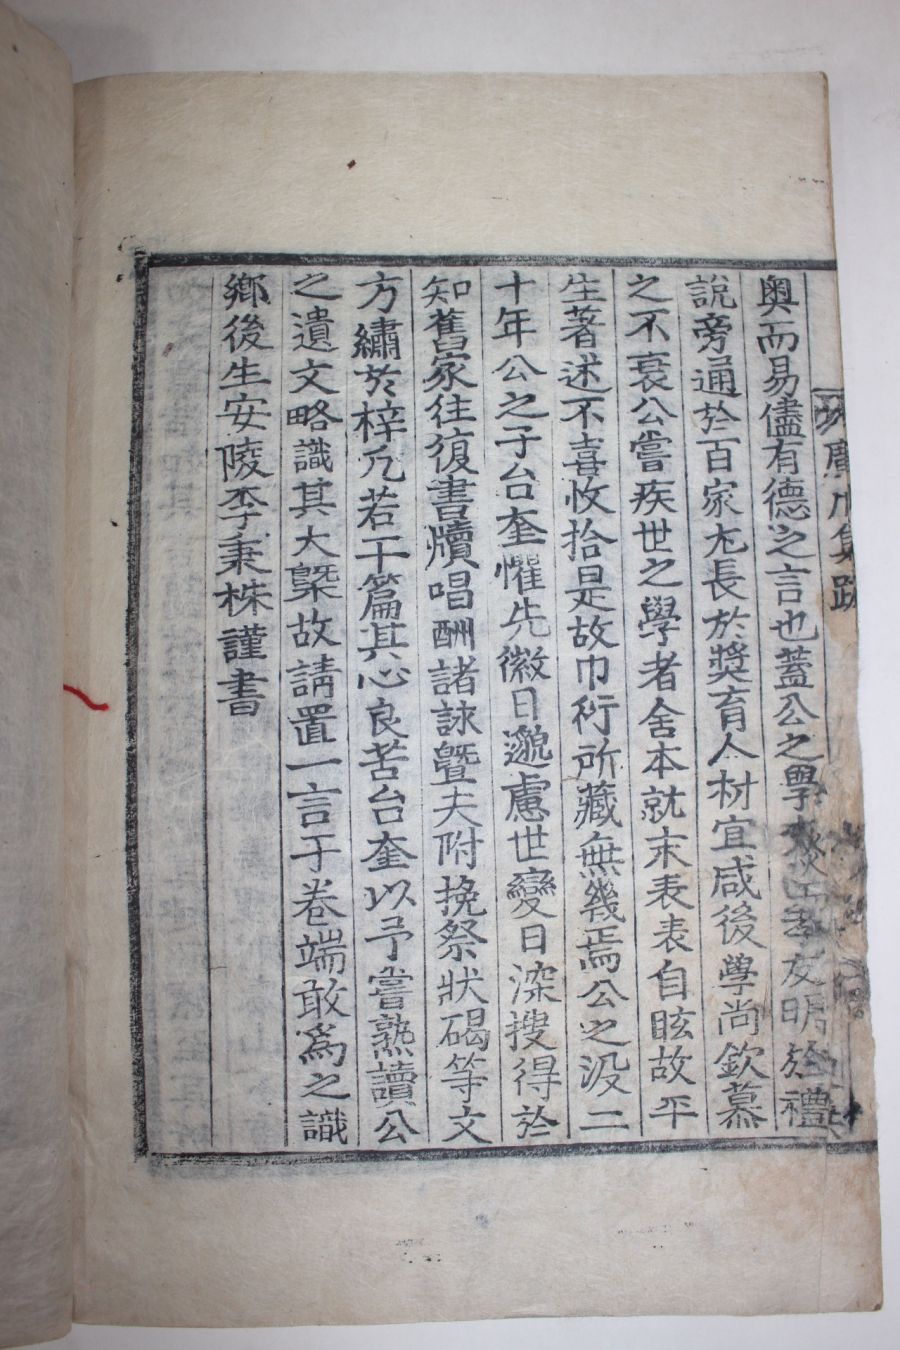 奧而易儘有德之言也蓋公之學孝友明於禮
說旁通於百家尤長於奬育人材宜咸後學尙欽慕
之不衰公嘗疾世之學者舍本就末表表自眩故平
生著述不喜收拾是故巾衍所藏無幾焉公之沒二
十年公之子台奎懼先徽日邈慮世變日深搜得於
知舊家往復書牘唱酬諸詠曁夫附挽祭狀碣等文
方繡於梓凡若干篇其心良苦台奎以予嘗熟讀公
之遺文略識其大槩故請置一言于卷端敢爲之識
鄕後生安陵李秉株謹書
集跋